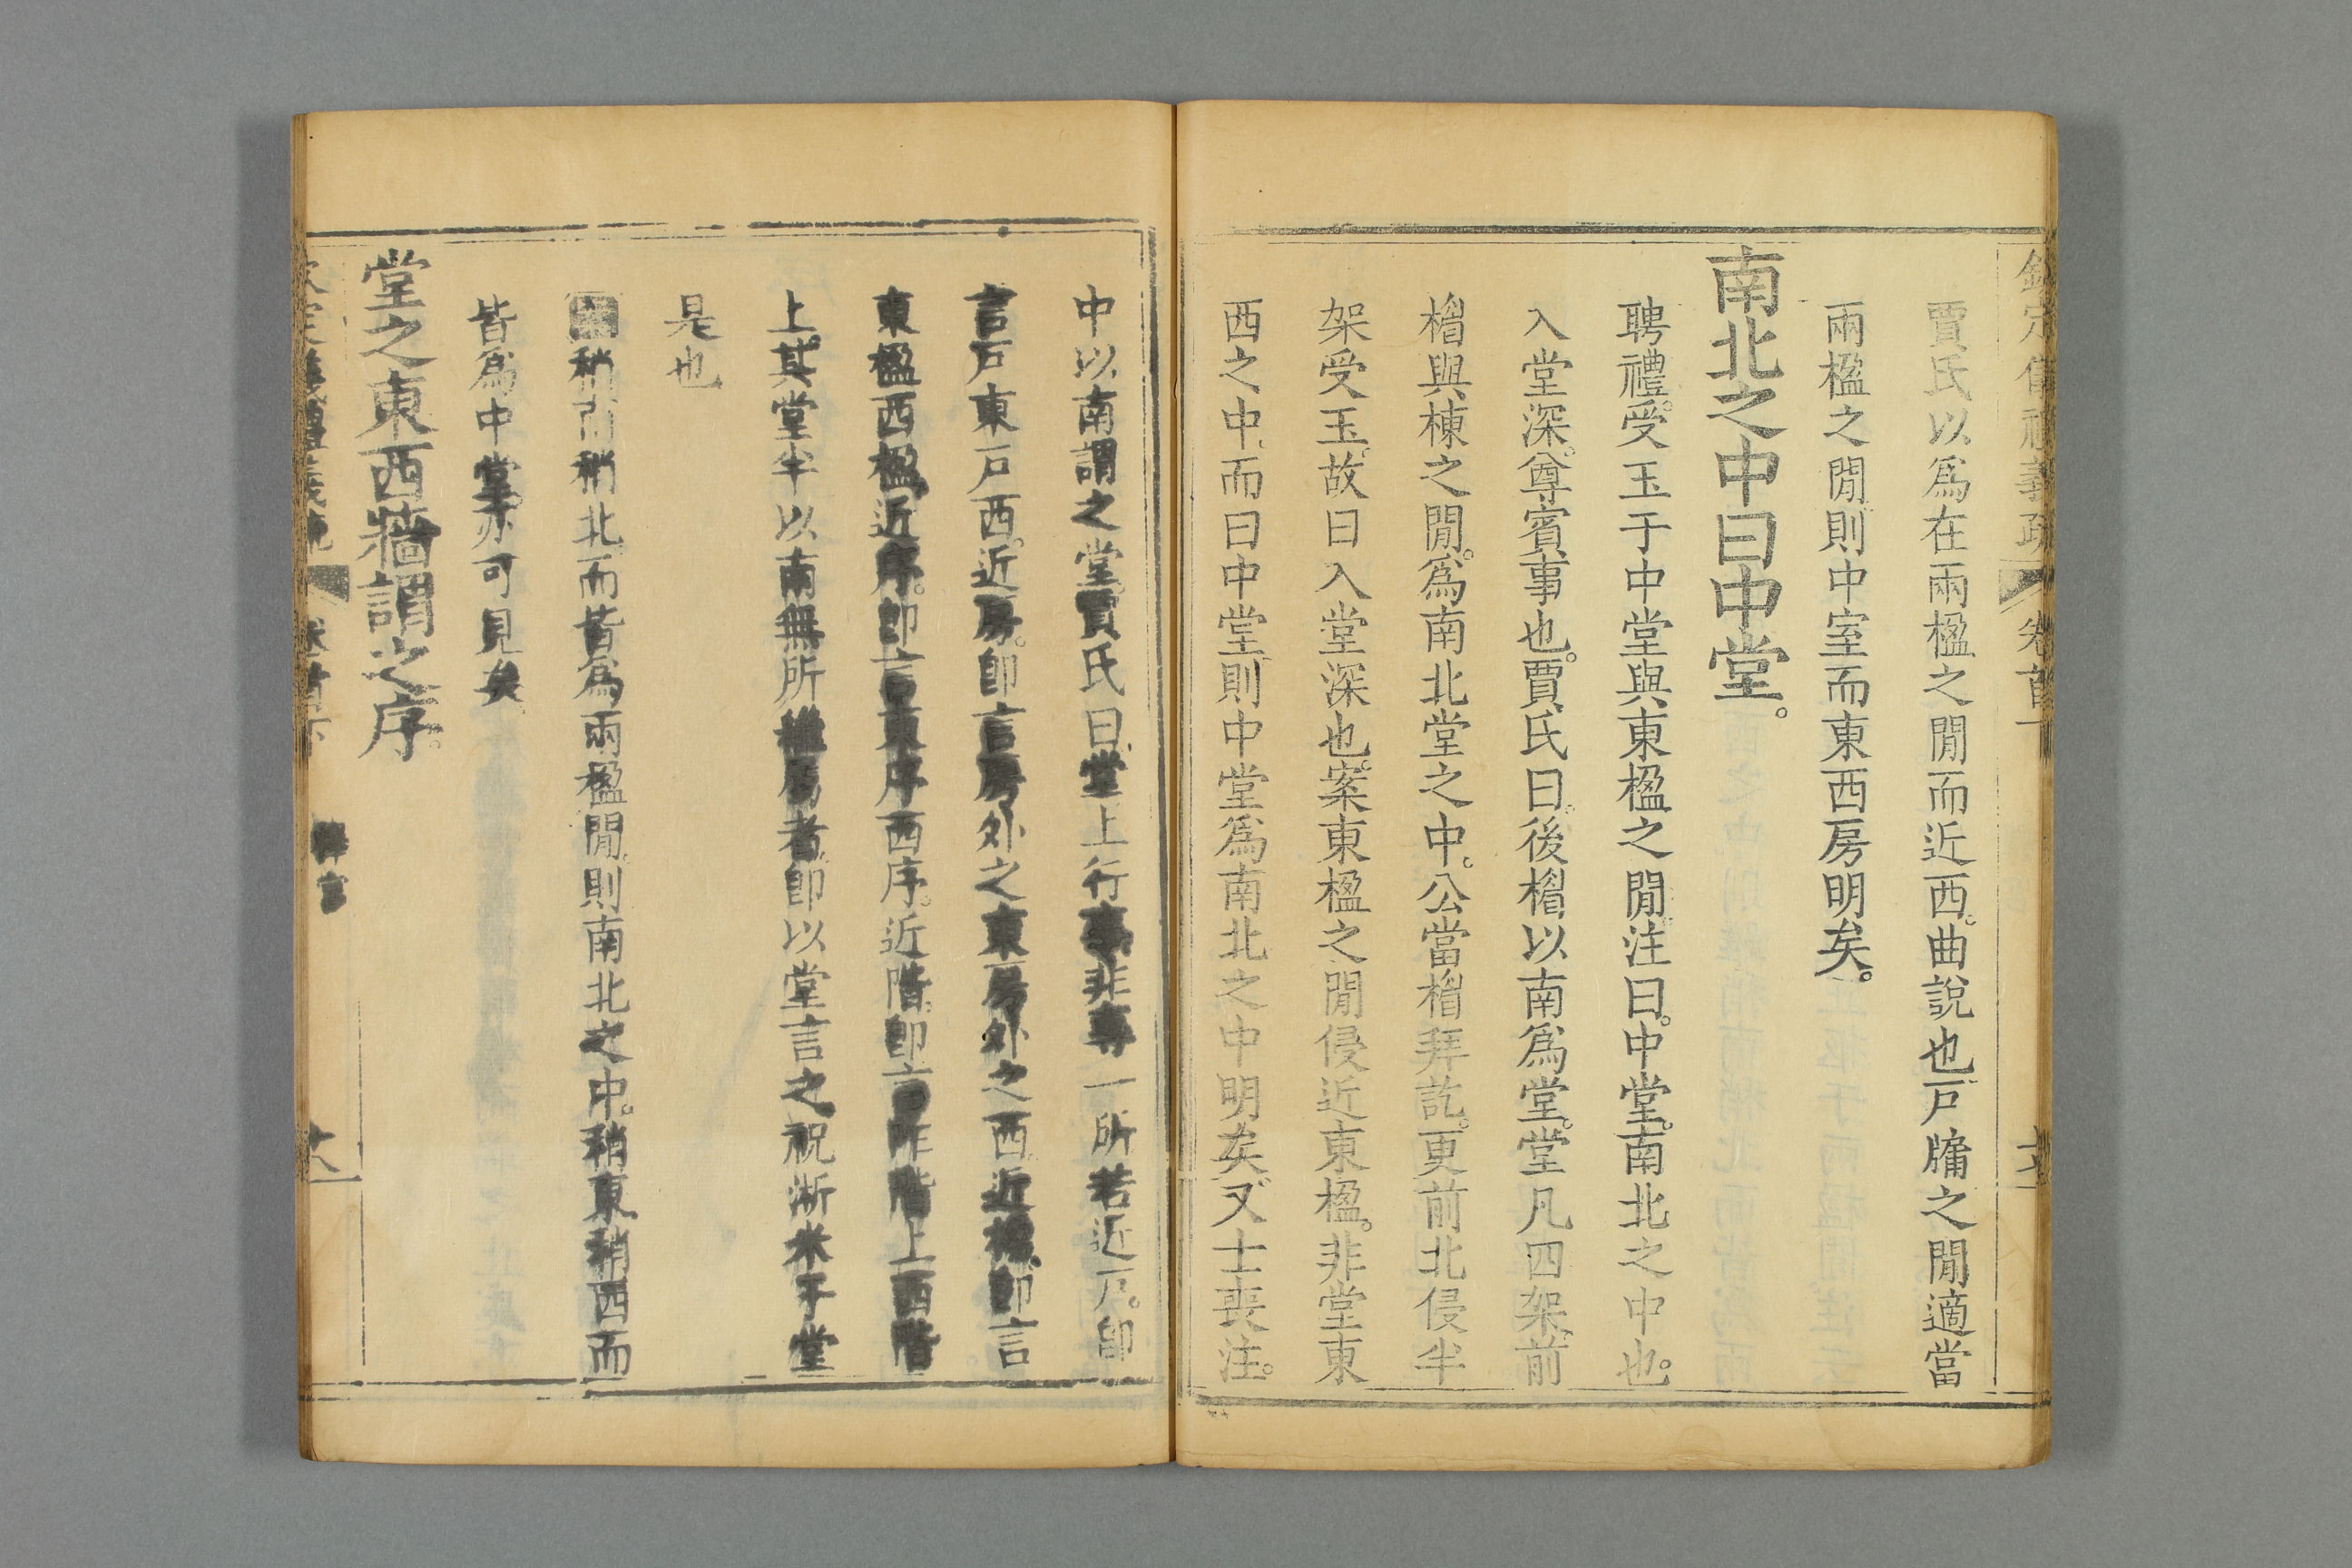 欽定儀禮義疏 卷首下
賈氏以爲在兩楹之閒而近西。曲說也。戶牖之閒適當
兩楹之閒則中室而東西房明矣。
南北之中曰中堂。
聘禮。受玉于中堂與東楹之閒。注曰。中堂。南北之中也。
入堂深。尊賓事也。賈氏曰。後楣以南爲堂。堂凡四架。前
楣與棟之閒。爲南北堂之中。公當楣拜訖。更前北侵半
架受玉。故曰入堂深也。案東楹之閒侵近東楹。非堂東
西之中。而曰中堂則中堂爲南北之中明矣。又士喪注。
中以南謂之堂。賈氏曰。堂上行事非專一所若近戶。卽
言戶東戶西。近房。卽言房外之東房外之西。近楹。卽言
東楹西楹。近序。卽言東序西序。近階。卽言阼階上西階
上。其堂半以南無所繼屬者。卽以堂言之。祝淅米于堂
是也
稍南稍北而皆爲兩楹閒。則南北之中。稍東稍西而
皆爲中堂。亦可見矣
堂之東西牆謂之序。
欽定儀禮義疏 卷首下 十八